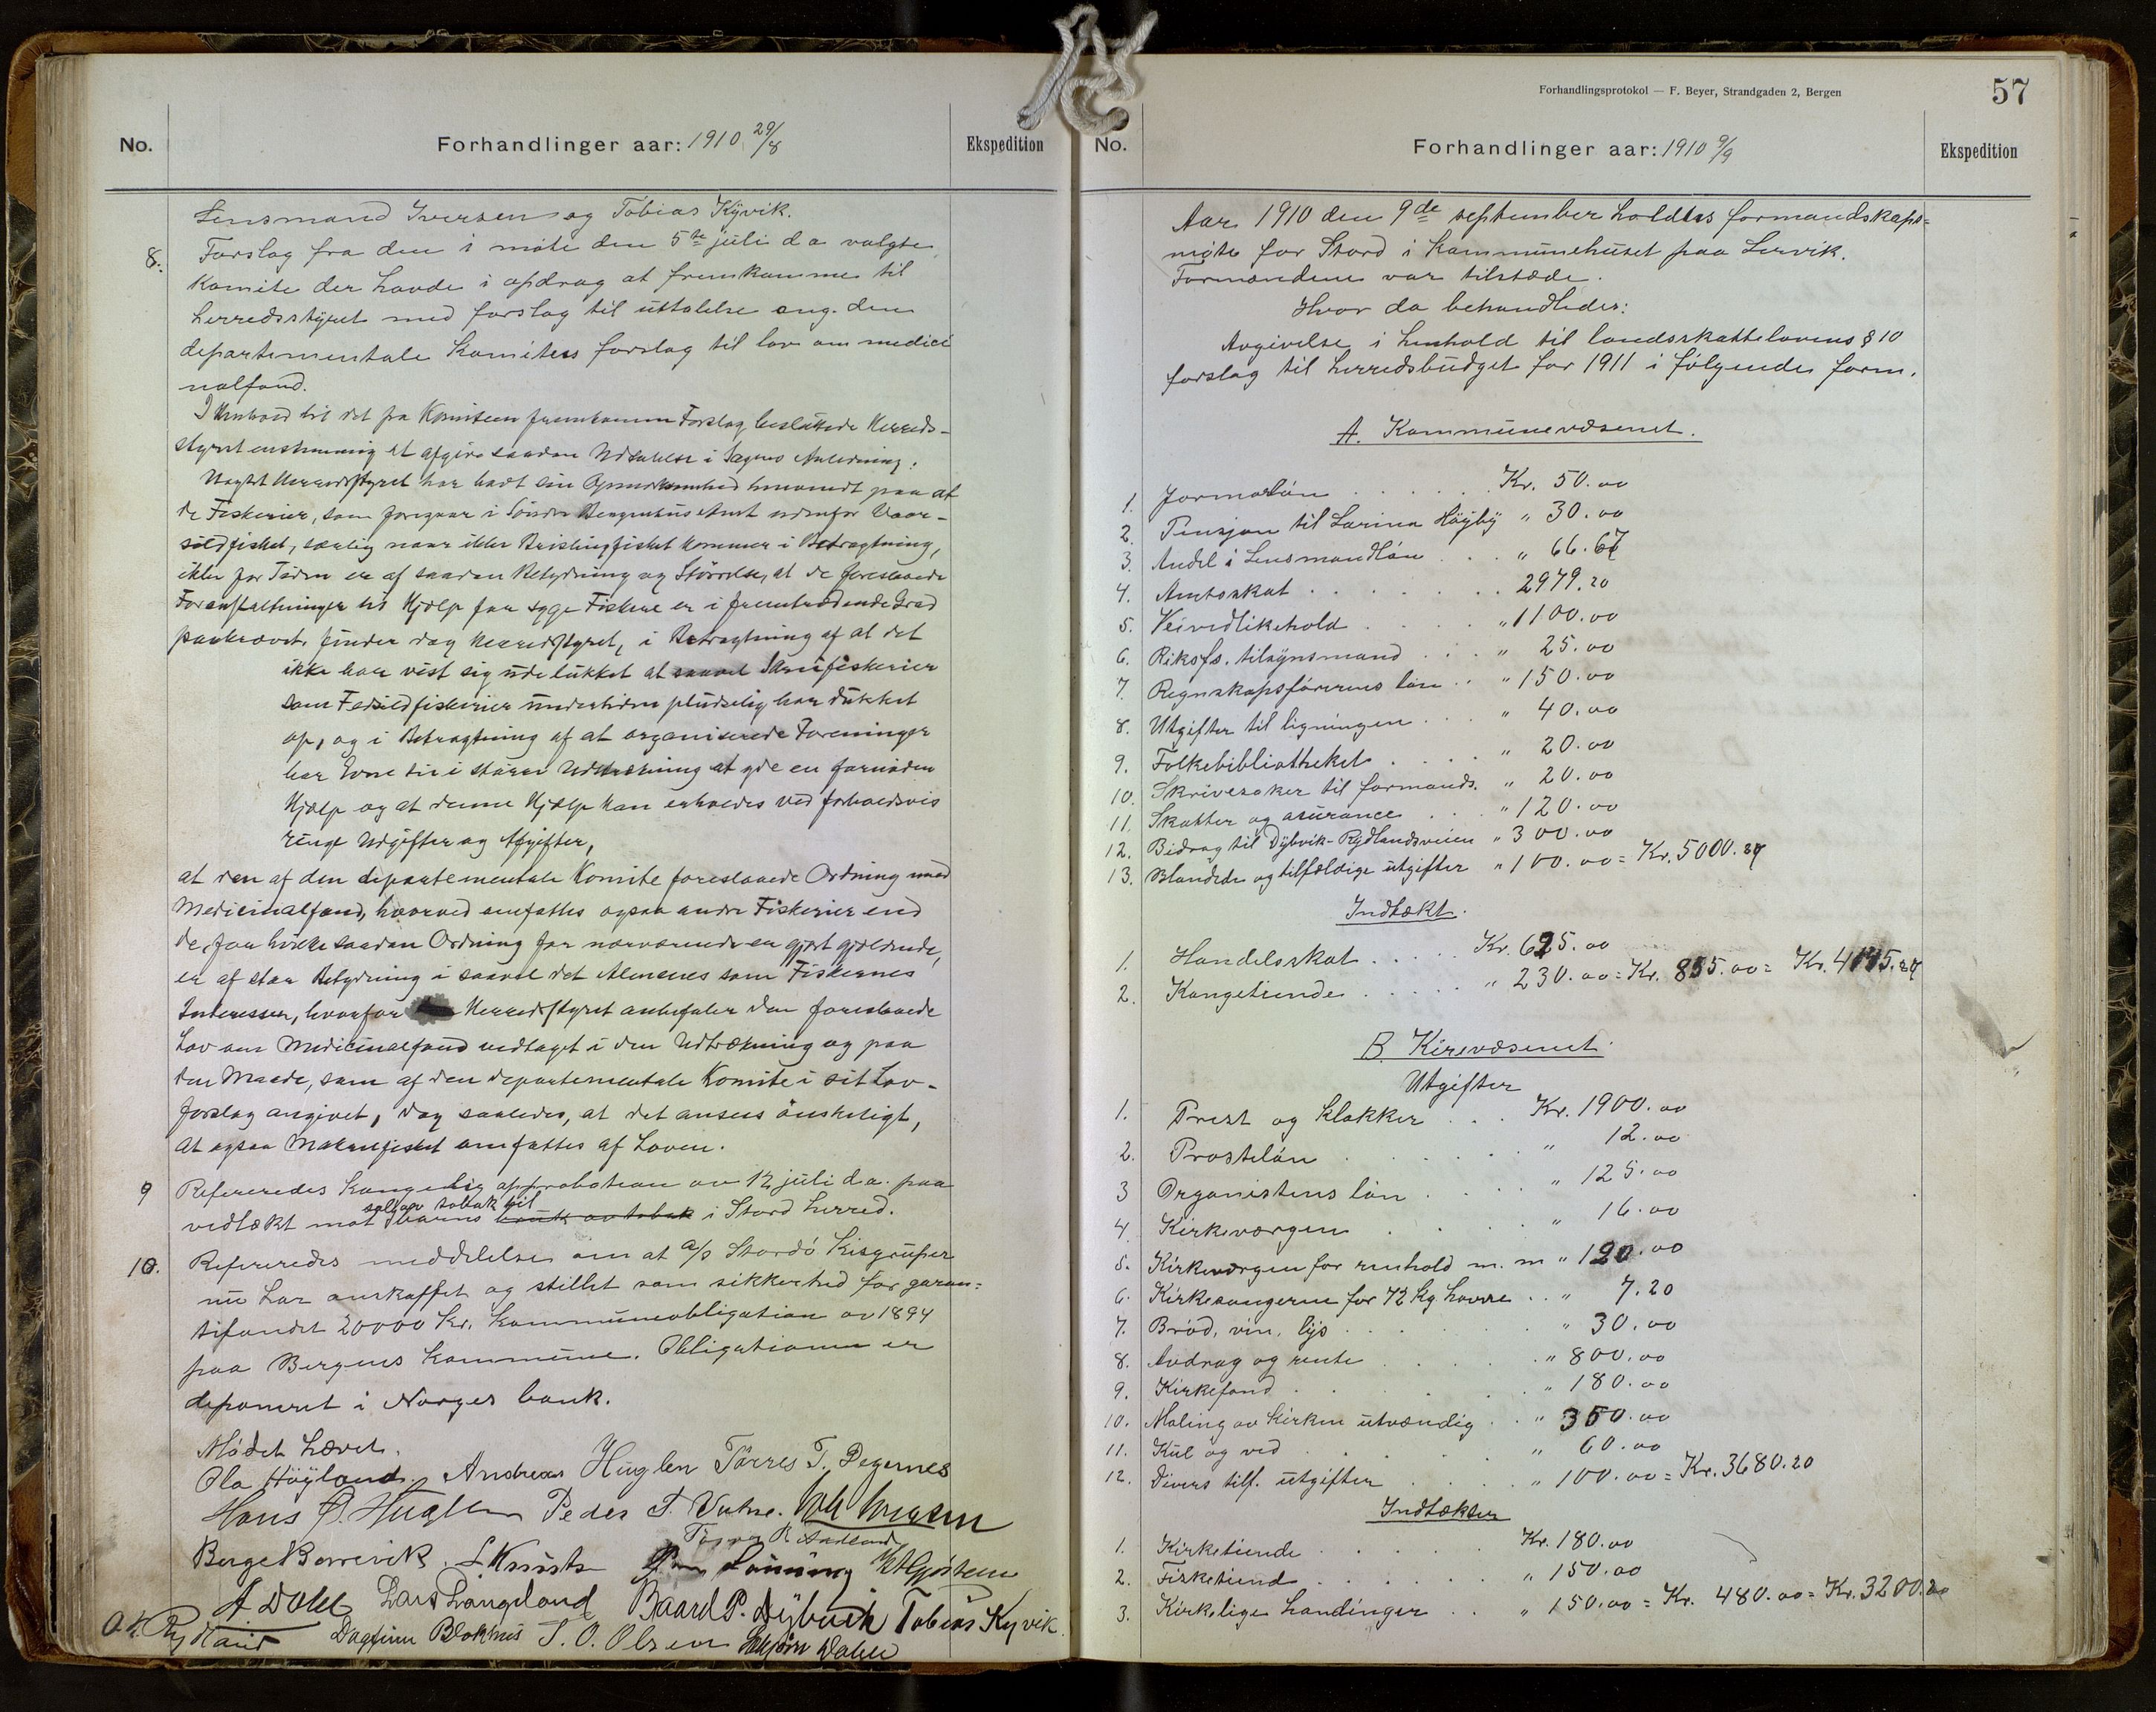 No.
Forhandlinger aar: 1910 29/8
Ekspedition
Lensmand Iversen og Tobias Kyvik.
8. Forslag fra den i möte den 5te juli d a valgte
komite der havde i opdrag at fremkomme til
herredsstyret med forslag til uttalelse ang. den
departementale komites forslag til lov om medici
nalfond.
I Henhold til det fra Komiteen fremkomne Forslag besluttede Herreds-
styret enstemmig at afgive saadan Udtalelse i Sagens Anledning:
Uagtet Herredsstyret har havt sin Opmerksomhed henvendt paa at
de Fiskerier, som foregaar i Söndre Bergenhus Amt udenfor Vaar-
sildfisket, særlig naar ikke Brislingfisket kommer i Betragtning,
ikke for Tiden er af saadan Betydning og Störrelse, at de foreslaaede
Foranstaltninger til Hjælp for syge Fiskere er i fremtrædende Grad
paakrævet, finder dog Herredsstyret, i Betragtning af at det
ikke har vist sig udelukket at saavel Storsildfiskerier
som Fedsildfiskerier undertiden pludselig har dukket
op, og i Betragtning af at organiserede Foreninger
har Evne til i större Udstrækning at yde en fornöden
Hjælp og at denne Hjælp kan erholdes ved forholdsvis
ringe Udgifter og Afgifter,
at den af den departementale Komite foreslaaede Ordning med
Medicinalfond, hvorved omfattes ogsaa andre Fiskerier end
de, for hvilke saadan Ordning for nærværende er gjort gjældende,
er af stor Betydning i saavel det Almenes som Fiskernes
Interesser, hvorfor Herredsstyret anbefaler den foreslaaede
Lov om Medicinalfond vedtaget i den Udstrækning og paa
den Maade, som af den departementale Komite i sit Lov-
forslag angivet, dog saaledes, at det ansees önskeligt,
at ogsaa Makrelfisket omfattes af Loven.
9 Refereredes kongelig approbation av 12 juli d.a. paa
salg av tobak til
vedtækt mot barns bruk av tobak i Stord herred.
10. Refereredes meddelelse om at a/s Stordö Kisgruber
nu har anskaffet og stillet som sikkerhed for garan=
tifondet 20000 Kr. kommuneobligation av 1894
paa Bergens kommune. Obligationen er
deponeret i Norges bank.
Mödet hævet.
Ola Höyland. Andreas Huglen Törres T. Degernes
Hans Ö. Huglen Peder T. Vatne.
Börge Borrevik.
A Dahl Lars Langeland Baard P. Dybvik Tobias Kyvik.
O. H. Rydland Dagfinn Blokhus T. O. Olsen Dahle
Forhandlingsprotokol — F. Beyer, Strandgaden 2, Bergen
57
No.
Forhandlinger aar: 1910 9/9
Ekspedition
Aar 1910 den 9de september holdtes formandskaps=
möte for Stord i kommunehuset paa Lervik.
Formændene var tilstæde.
Hvor da behandledes:
Avgivelse i henhold til landsskattelovens § 10
forslag til herredsbudget for 1911 i fölgende form.
A. Kommunevæsenet.
1. Jormorlön . . . . . Kr. 50.00
2. Pensjon til Larina Höyby " 30.00
3. Andel i Lensmandlön . . . " 66.67
4. Amtsskat . . . . . . . 2979.20
5. Veivedlikehold . . . . . " 1100.00
6. Riksfs. tilsynsmand . . . " 25.00
7. Regnskapsförerens lön . . " 150.00
8. Utgifter til ligningen . . . " 40.00
9. Folkebibliotheket . . . . " 20.00
10. Skrivesaker til formands. " 20.00
11. Skatter og asurance . . . " 120.00
12. Bidrag til Dybvik-Rydlandsveien " 300.00
13. Blandede og tilfældige utgifter " 100.00 = Kr. 5000.87
Indtækt.
1. Handelsskat . . . . . Kr. 625.00
2. Kongetiende . . . . . " 230.00 = Kr. 855.00 = Kr. 4145.87
B. Kirevæsenet.
Utgifter
1. Prest og klokker . . . Kr. 1900.00
2. Prostelön . . . . . " 12.00
3 Organistens lön . . . . " 125.00
4. Kirkeværgen . . . . . " 16.00
5. Kirkeværgen for renhold m. m " 120.00
6. Kirkesangeren for 72 kg. havre . . " 7.20
7. Bröd, vin, lys . . . . . " 30.00
8. Avdrag og rente . . . . . " 800.00
9. Kirkefond . . . . . " 180.00
10. Maling av kirken utvændig . . " 350.00
11. Kul og ved . . . . . " 60.00
12. Divers tilf. utgifter . . . . " 100.00 = Kr. 3680.20
Indtækter
1. Kirketiende . . . . . Kr. 180.00
2. Fisketiend . . . . . " 150.00
3. Kirkelige handlinger . . " 150.00 = Kr. 480.00 = Kr. 3200.20